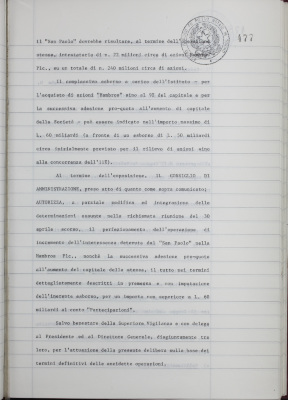 il "San Paolo" dovrebbe risultare, al termine dell'operazione
stessa, intestataria di n. 21 milioni circa di azioni Hambros
Plc., su un totale di n. 240 milioni circa di azioni.
Il complessivo esborso a carico dell'Istituto - per
l'acquisto di azioni "Hambros" sino al 9% del capitale e per
la successiva adesione pro-quota all'aumento di capitale
della Società - può essere indicato nell'importo massimo di
L. 60 miliardi (a fronte di un esborso di L. 50 miliardi
circa inizialmente previsto per il rilievo di azioni sino
alla concorrenza dell'11%).
Al termine dell'esposizione, IL CONSIGLIO DI
AMMINISTRAZIONE, preso atto di quanto come sopra comunicato;
AUTORIZZA, a parziale modifica ed integrazione delle
determinazioni assunte nella richiamata riunione del 30
aprile scorso, il perfezionamento dell'operazione di
incremento dell'interessenza detenuta dal "San Paolo" nella
Hambros Plc., nonché la successiva adesione pro-quota
all'aumento del capitale della stessa, il tutto nei termini
dettagliatamente descritti in premessa e con imputazione
dell'instante esborso, per un importo non superiore a L. 60
miliardi al conto "Partecipazioni".
Salvo benestare della Superiore Vigilanza e con delega
al Presidente ed al Direttore Generale, disgiuntamente tra
loro, per l'attuazione della presente delibera sulla base dei
termini definitivi delle suddette operazioni.
177